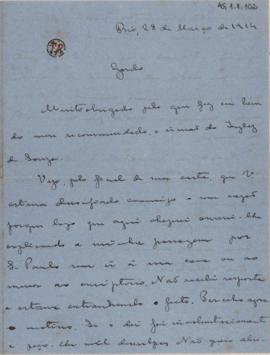 Rio, 28 de Março de 1914
Muito obrigado pelo que fez em bem
do meu recommendado, o irmão do Inglez
de Souza.
Vejo, pelo final de sua carta, que V.
estava desconfiado commigo e com razão
porque logo que aqui cheguei escrevi-lhe
explicando a minha passagem por
S. Paulo sem ir á sua casa ou ao
menos ao escriptorio. Não recebi resposta
e estava extranhando o facto. Percebo agora
o motivo. Se o fiz foi involuntariamente
e peço-lhe mil desculpas. Não quiz